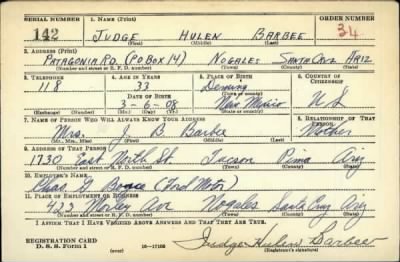 SERIAL NUMBER 1. NAME (Print) ORDER NUMBER
142 JUDGE HULEN BARBEE 34
(First) (Middle) (Last)
2. ADDRESS (Print)
PATAGONIA RD. (PO BOX 14) NOGALES SANTA CRUZ ARIZ
(Number and street or R. F. D. number) (Town) (County) (State)
3. TELEPHONE 4. AGE IN YEARS 5. PLACE OF BIRTH 6. COUNTRY OF CITIZENSHIP
118 33 Deming
DATE OF BIRTH (Town or county)
3-6-08 New Mexico U S
(Exchange) (Number) (Mo.) (Day) (Yr.) (State or country)
7. NAME OF PERSON WHO WILL ALWAYS KNOW YOUR ADDRESS 8. RELATIONSHIP OF THAT PERSON
Mrs. J B Barbee Mother
(Mr., Mrs., Miss) (First) (Middle) (Last)
9. ADDRESS OF THAT PERSON
1730 East North St. Tucson Pima Ariz
(Number and street or R. F. D. number) (Town) (County) (State)
10. EMPLOYER'S NAME
Chas. (Ford Motor)
11. PLACE OF EMPLOYMENT OR BUSINESS
423 Morley Ave Nogales Santa Cruz Ariz
(Number and street or R. F. D. number) (Town) (County) (State)
I AFFIRM THAT I HAVE VERIFIED ABOVE ANSWERS AND THAT THEY ARE TRUE.
REGISTRATION CARD
D. S. S. Form 1 (over) 16-17105 Judge Hulen Barbee
(Registrant's signature)